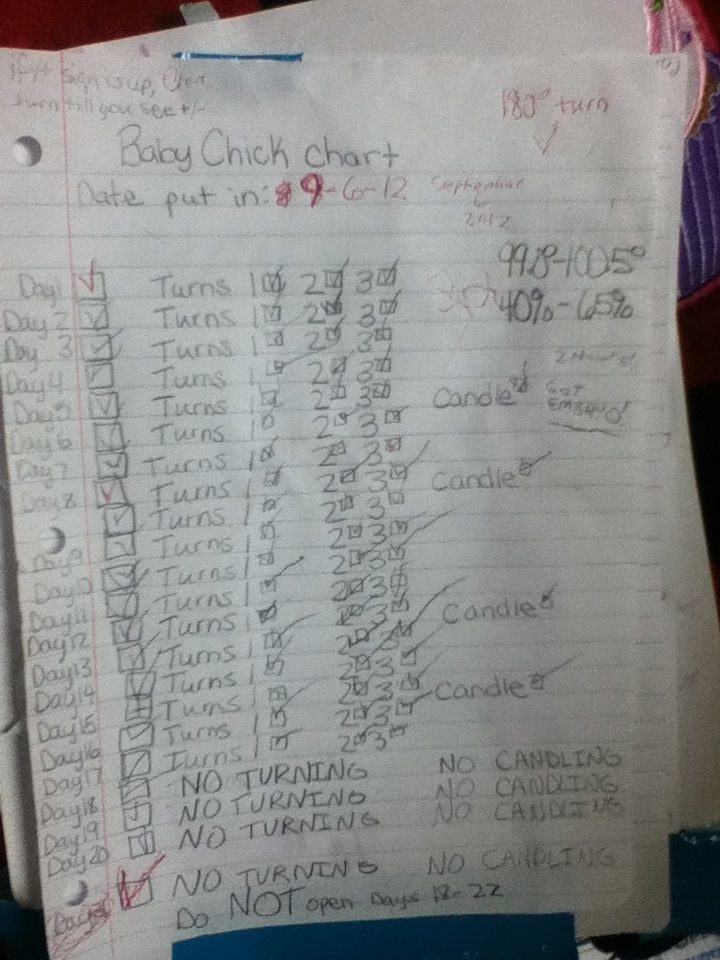 if + sign is up,
turn till you see +/-
180° turn
Baby Chick chart
Date put in: 9-6-12 September 6 2012
99.5°-100.5°
40%-65%
Day 1 Turns 1 2 3
Day 2 Turns 1 2 3
Day 3 Turns 1 2 3
Day 4 Turns 1 2 3
Day 5 Turns 1 2 3 Candle
Day 6 Turns 1 2 3
Day 7 Turns 1 2 3
Day 8 Turns 1 2 3 Candle
Turns 1 2 3
Day 9 Turns 1 2 3
Day 10 Turns 1 2 3
Day 11 Turns 1 2 3
Day 12 Turns 1 2 3 Candle
Day 13 Turns 1 2 3
Day 14 Turns 1 2 3
Day 15 Turns 1 2 3 Candle
Day 16 Turns 1 2 3
Day 17 Turns 1 2 3
Day 18 NO TURNING NO CANDLING
Day 19 NO TURNING NO CANDLING
Day 20 NO TURNING NO CANDLING
NO TURNING NO CANDLING
Do NOT open Days 18-22